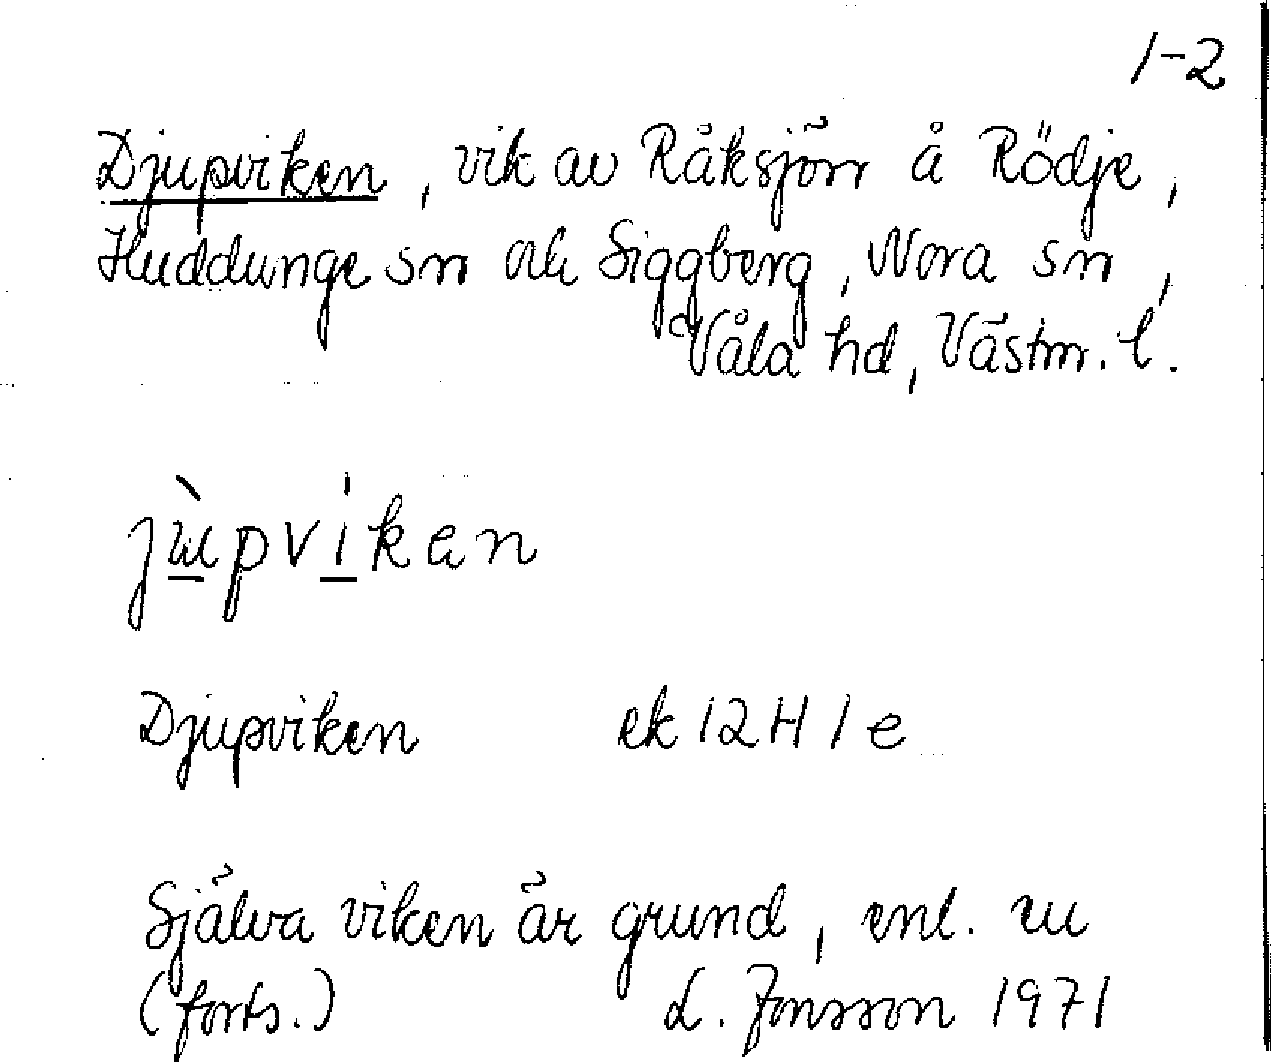 1-2
Djupviken, vik av Råksjön å Rödje,
Huddunge sn och Siggberg, Nora sn,
Våla hd, Västm. l.
jùpvíken
Djupviken ek 12H 1e
Själva viken är grund, enl. uu
(forts.) L. Jonsson 1971